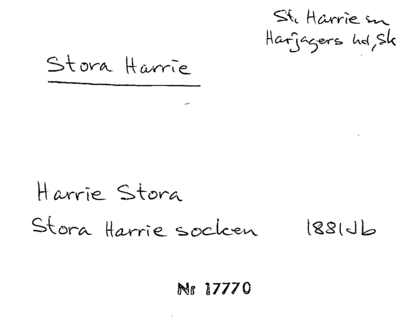 St. Harrie sn
Harjagers hd, Sk
Stora Harrie
Harrie Stora
Stora Harrie socken 1881 Jb
Nr 17770